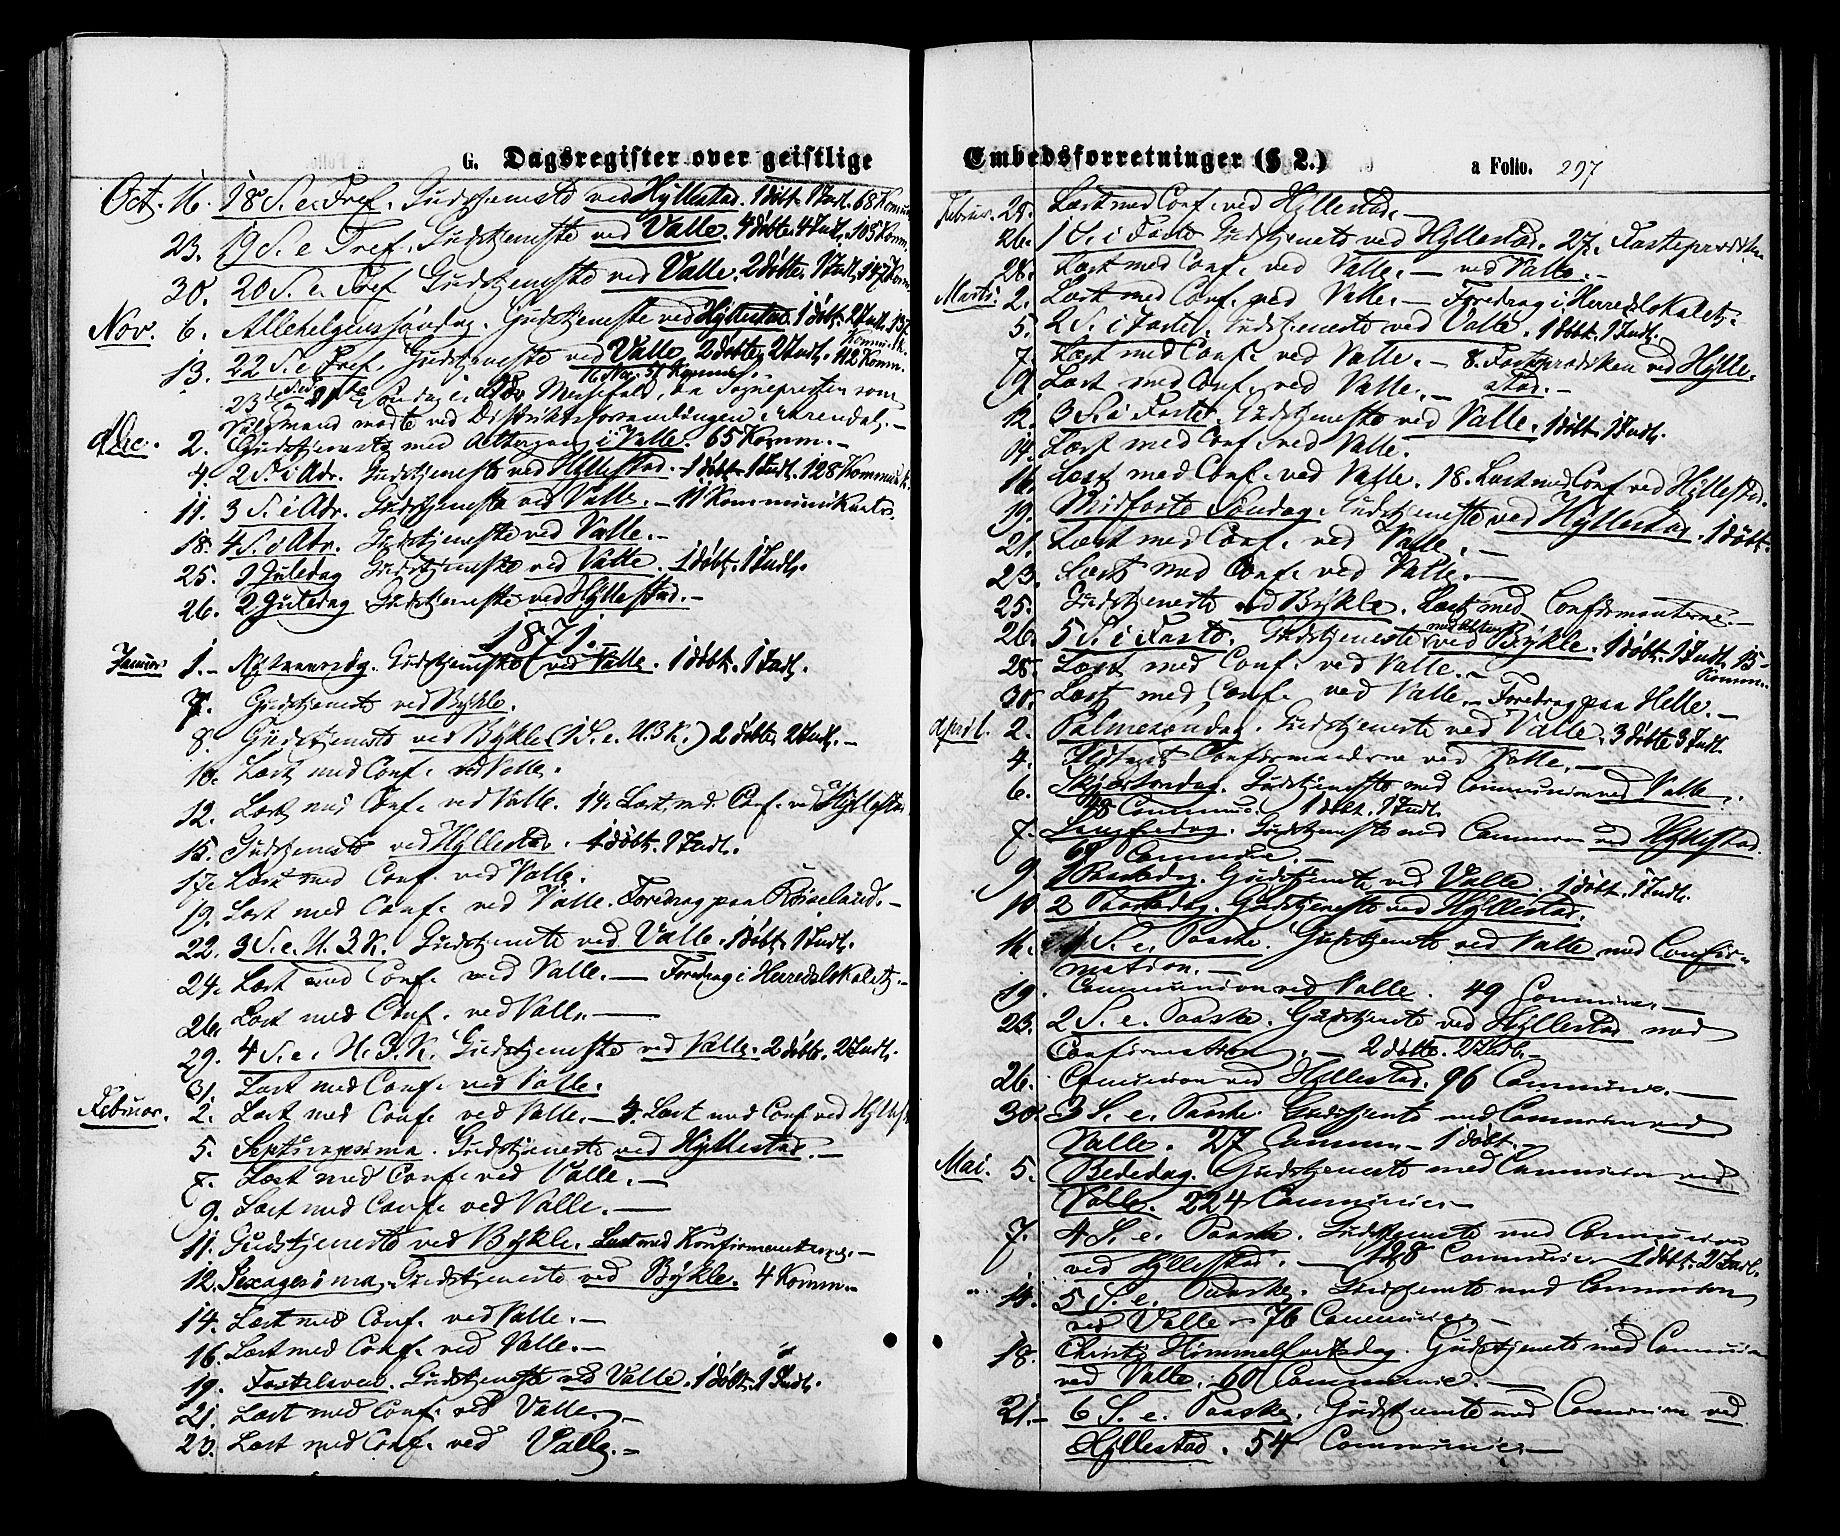 G. Dagsregister over geistlige
Oct. 16. 18 S. e. Tref. Gudstjeneste ved Hyllestad. 1 døbt. 1 Indl. 68 Kommun
23. 19 S. e Tref. Gudstjeneste ved Valle. 4 døbte. 4 Indl. 105 Komm.
30. 20 S. e. Tref Gudstjeneste ved Valle. 2 døbte. 1 Indl. 147 Komm
Nov. 6. Allehelgenssøndag. Gudstjeneste ved Hyllestad. 1 døbt. 2 Indl. 137
Kommunik.
13. 22 S. e Tref. Gudstjeneste ved Valle. 2 døbte. 2 Indl. 112 Komm.
16 Nov. 51 Kommun.
23 Søndag e. Tref. Messefald, da Sognepresten som
Valgmand mødte ved Distriktsforsamlingen i Arendal.-
Dbc. 2. Gudstjeneste med Altergang i Valle. 65 Komm.-
4. 2 S. i Adv. Gudstjeneste ved Hyllestad. 1 døbt. 1 Indl. 128 Kommunik.
11. 3 S. i Adv. Gudstjeneste ved Valle. - 11 Kommunikanter
18. 4 S. i Adv. Gudstjeneste ved Valle.-
25. 1 Juledag Gudstjeneste ved Valle. 1 døbt. 1 Indl.
26. 2 Juledag Gudstjeneste ved Hyllestad.-
1871.
Januar 1.- Nytaarsdag. Gudstjeneste ved Valle. 1 døbt. 1 Indl.
7. Gudstjeneste ved Bykle.
8. Gudstjeneste ved Bykle (1 S. e. H. 3 K.) 2 døbte. 2 Indl.-
10. Læst med Conf. ved Valle.
12. Læst med Conf. ved Valle. 14. Læst med Conf. ved Hyllestad
15. Gudstjeneste ved Hyllestad. 1 døbt. 1 Indl.
17. Læst med Conf. ved Valle.
19. Læst med Conf. ved Valle. Foredrag paa Riseland.-
22. 3 S. e. H. 3 K. Gudstjeneste ved Valle. 1 døbt. 1 Indl.
24. Læst med Conf. ved Valle.- Foredrag i Herredslokalet.-
26. Læst med Conf. ved Valle.-
29. 4 S. e. H. 3. K. Gudstjeneste ved Valle. 2 døbte. 2 Indl.
31. Læst med Conf. ved Valle.
Februar. 2. Læst med Conf. ved Valle.- 4. Læst med Conf. ved Hyllest
5. Septuagesima. Gudstjeneste ved Hyllestad.-
7. Læst med Conf. ved Valle.-
9. Læst med Conf. ved Valle.-
11. Gudstjeneste ved Bykle. Læst med Konfirmanterne.-
12. Sexagesima. Gudstjeneste ved Bykle. 4 Komm.-
14. Læst med Conf. ved Valle.-
16. Læst med Conf. ved Valle.-
19. Fastelavn. Gudstjeneste ved Valle. 1 døbt. 1 Indl.
21. Læst med Conf. ved Valle.-
23. Læst med Conf. ved Valle.-
Embedsforretninger (§ 2.) a Folio. 297
Februar. 25. Læst med Conf. ved Hyllestad.-
26. 1 S. i Faste Gudstjeneste ved Hyllestad. 27. Fasteprædiken
28. Læst med Conf. ved Valle.- ved Valle.-
Marts. 2. Læst med Conf. ved Valle.- Foredrag i Herredslokalet.-
5. 2 S. i Faste. Gudstjeneste ved Valle. 1 døbt. 1 Indl.
7. Læst med Conf. ved Valle.- 8. Fasteprædiken ved Hylle-
9. Læst med Conf. ved Valle.- stad.-
12. 3 S. i Faste. Gudstjeneste ved Valle. 1 døbt. 1 Indl.
14. Læst med Conf. ved Valle.
16. Læst med Conf. ved Valle. 18. Læst med Conf ved Hyllestad.
19. Midfaste Søndag. Gudstjeneste ved Hyllestad. 1 døbt.
21. Læst med Conf. ved Valle.-
23. Læst med Conf. ved Valle.-
25. Gudstjeneste ved Bykle. Læst med Confirmanterne.-
26. 5 S. i Faste. Gudstjeneste med Alterg. ved Bykle. 1 døbt. 1 Indl. 15-
Komm.
28. Læst med Conf. ved Valle.-
30. Læst med Conf. ved Valle.- Foredrag paa Helle.-
April. 2. Palmesøndag. Gudstjeneste ved Valle. 3 døbte 3 Indl.
4. Confirmanderne ved Valle.-
6. Skjærtorsdag. Gudstjeneste med Communion ved Valle.
98 Commun. 1 døbt. 1 Indl.
7. Langfredag. Gudstjeneste med Communion ved Hyllestad.
Commun.-
9. 1 Paaskedag. Gudstjeneste ved Valle. 1 døbt. 1 Indl.
10 2 Paaskedag. Gudstjeneste ved Hyllestad.
16. 1 S. e. Paaske. Gudstjeneste ved Valle med Confir-
mation.-
19. Communion ved Valle. 49 Commun.-
23. 2 S. e. Paaske. Gudstjeneste ved Hyllestad med
Confirmation.- 2 døbte. 2 Indl.-
26. Communion ved Hyllestad. 96 Commun.-
30. 3 S. e. Paaske. Gudstjeneste med Communion ved
Valle. 27 Commun.- 1 døbt.-
Mai. 5. Bededag. Gudstjeneste med Communion ved
Valle. 224 Communic.-
7. 4 S. e. Paaske. Gudstjeneste med Communion
ved Hyllestad.- 128 Communic. 1 døbt. 2 Indl.
14. 5 S. e. Paaske. Gudstjeneste med Communion
ved Valle - 76 Communic.-
18. Christi Himmelfartsdag. Gudstjeneste med Communion
ved Valle. 60 Communic.-
21.- 6 S. e. Paaske. Gudstjeneste med Communion ved
Hyllestad. 54 Communic.-